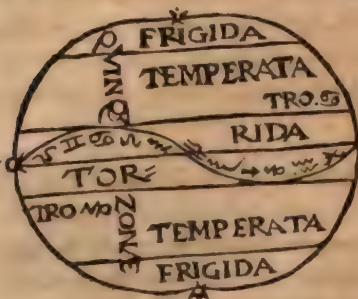 FRIGIDA
QVINQ
TEMPERATA
TRO.♋
RIDA
♉ ♊ ♋ ♌ ♍ ♎ ♏ ♐ ♑ ♒ ♓
TOR=
TRO ♑
ZONÆ
TEMPERATA
FRIGIDA